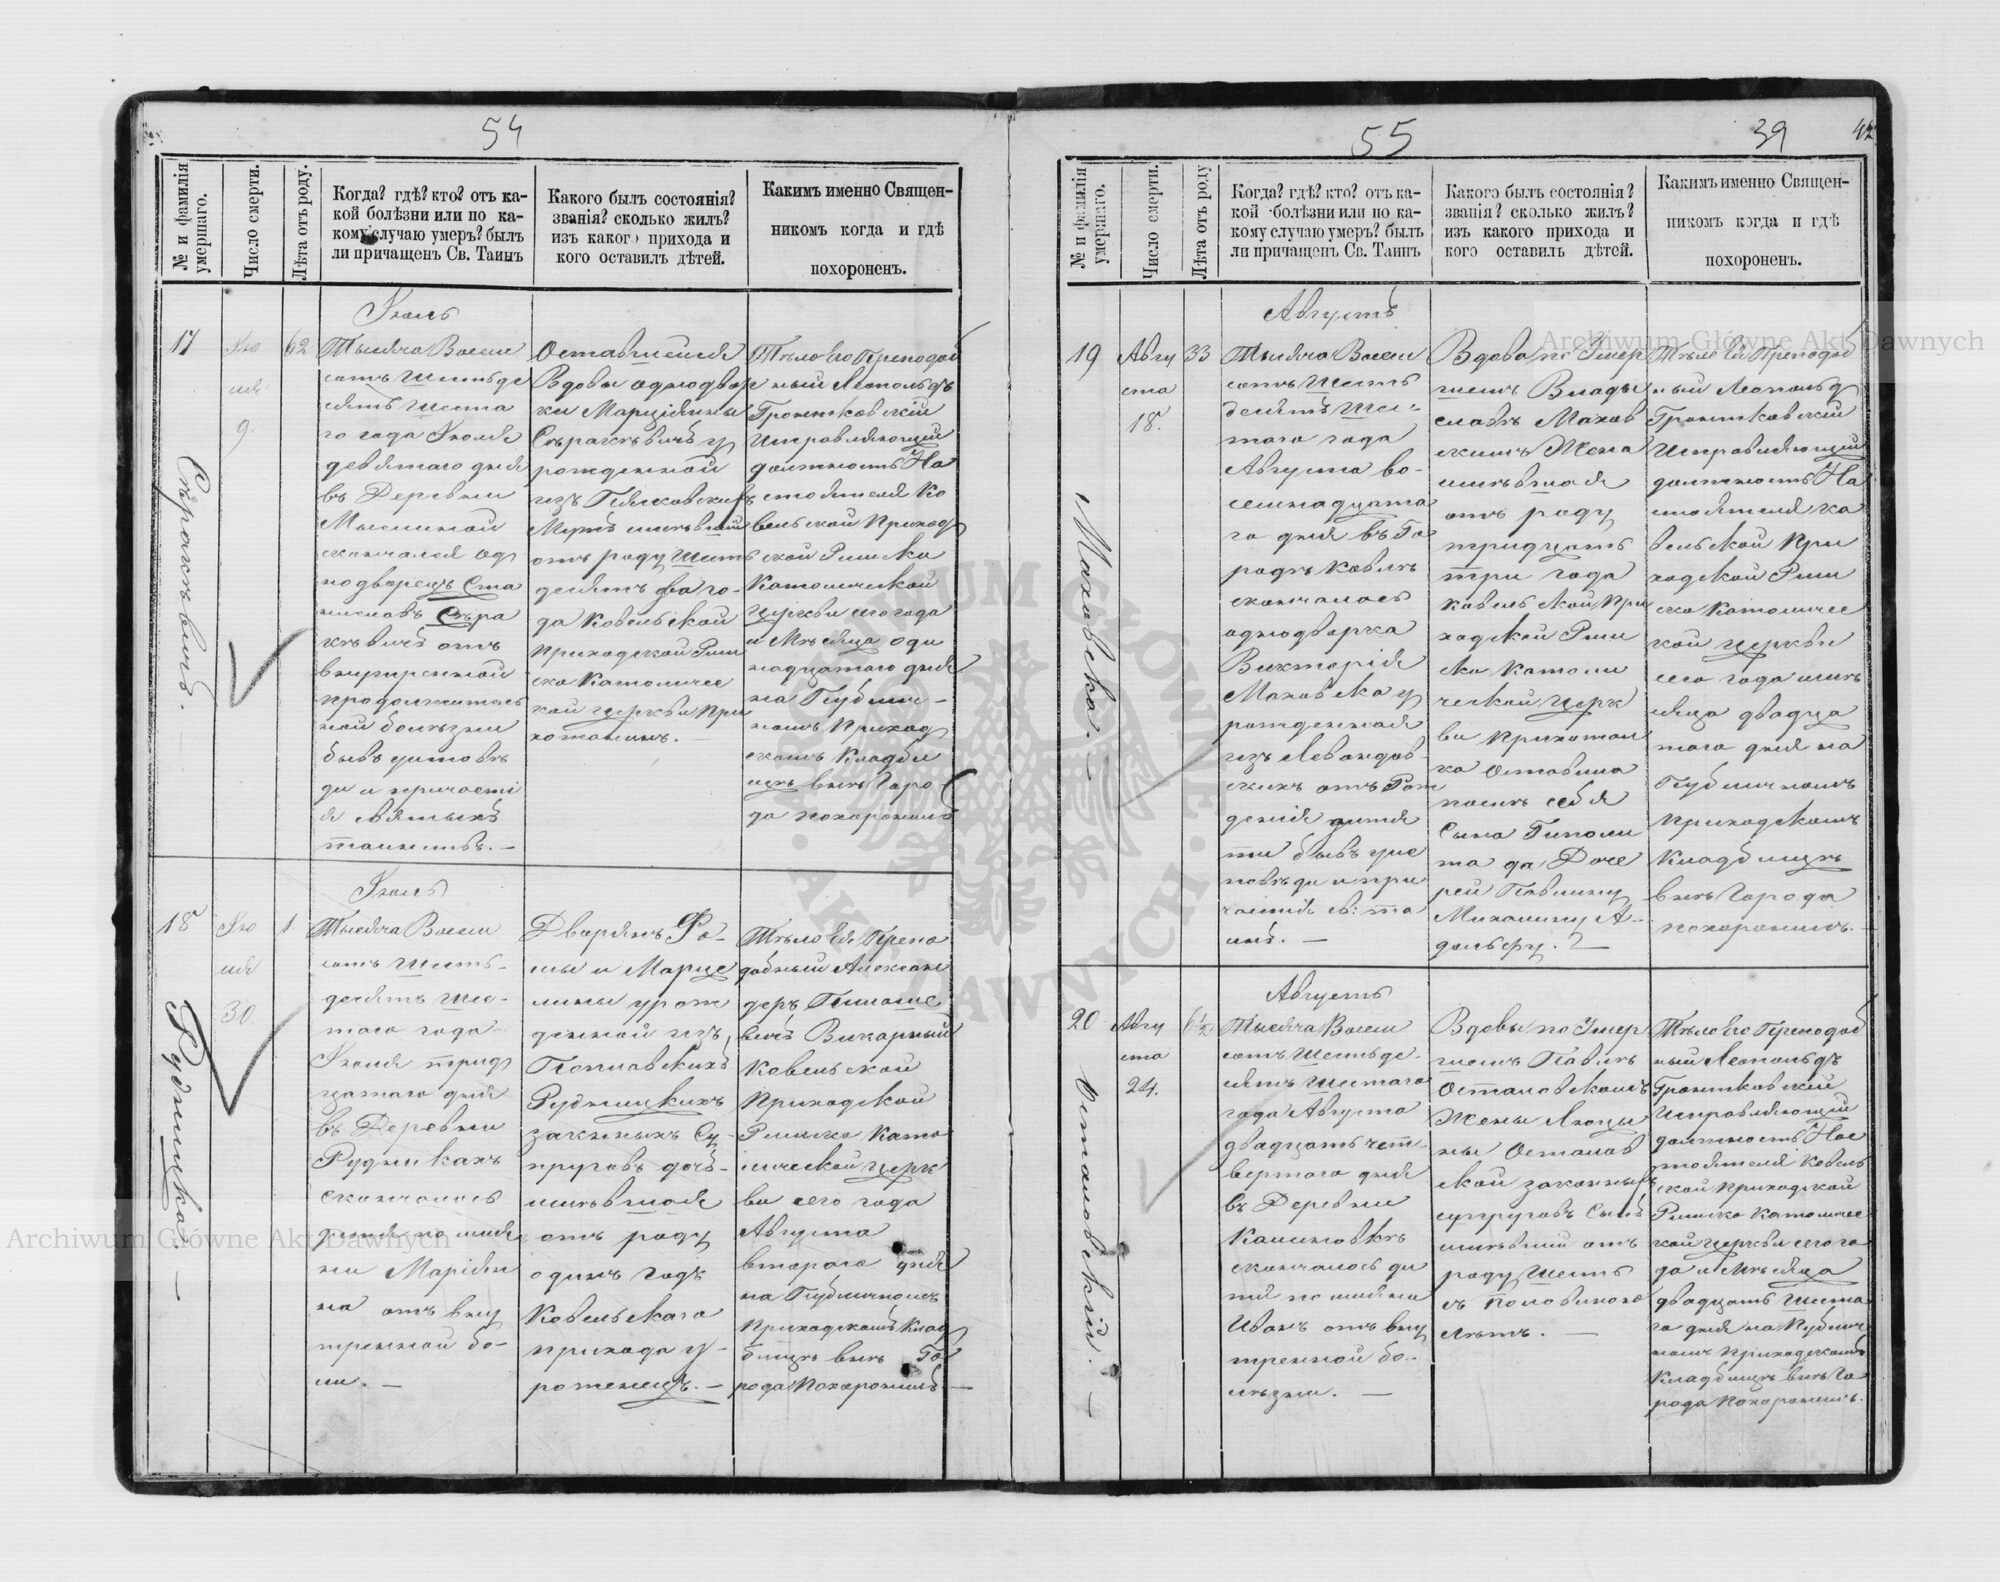 54
№ и фамилія умершаго.
Число смерти.
Лѣта отъ роду.
Когда? гдѣ? кто? отъ ка-
кой болѣзни или по ка-
кому случаю умеръ? былъ
ли причащенъ Св. Таинъ
Какого былъ состоянія?
званія? сколько жилъ?
изъ какого прихода и
кого оставилъ дѣтей.
Какимъ именно Священ-
никомъ когда и гдѣ
похороненъ.
17
Сѣракѣвичъ.
Iю
ля
9.
62
Іюль
Тысяча Восем
сотъ Шестьде
сятъ Шеста
го года Іюля
девятаго дня
въ Деревни
скончался од
нодворецъ Ста
ниславъ Сѣра
кѣвичъ отъ
внутренной
продолжитель
ной болѣзни
бывъ уисповѣ
ди и причасті
я святыхъ
таинствъ. —
Оставшейся
Вдовы однодвор
ки Марціяны
Сѣракѣвичъ у
рожденной
изъ
Мужъ имѣвшій
отъ роду Шесть
десятъ два го-
да Ковельской
Приходской Рим
ско Католичес
кой церкви При
хожанинъ. —
Тѣло Его Преподоб
ный Леопольдъ
Гронтковскій
Исправляющій
должность На
стоятеля Ко
вельской Приход
ской Римско
Католической
Церкви сего года
и Мѣсяца оди
надцатаго дня
на Публич-
номъ Приход
скомъ Кладби
щѣ внѣ Горо
да похоронилъ
18
Рудницка. —
Iю
ля
30.
1.
Іюль
Тысяча Восем
сотъ Шесть-
десятъ Шес-
таго года
Іюля трид
цатаго дня
въ Деревни
Рудникахъ
скончалось
дитя по имя
ни Маріян
на отъ вну
тренной бо-
ли. —
Дворянъ Фо-
мы и Марце
лины урож
денной изъ
Поплавскихъ
Рудницкихъ
законныхъ Су
пруговъ дочь-
имѣвшая
отъ роду
одинъ годъ
Ковельскаго
прихода у-
роженецъ. —
Тѣло Ея Препо
добный Алексан
деръ
вичъ Викарный
Ковельской
Приходской
Римско Като
лической церк
ви сего года
Августа
втораго дня
на Публичномъ
Приходскомъ Клад
бищѣ внѣ Го
рода Похоронилъ —
55
39
42
№ и фамилія умершаго.
Число смерти.
Лѣта отъ роду
Когда? гдѣ? кто? отъ ка-
кой болѣзни или по ка-
кому случаю умеръ? былъ
ли причащенъ Св. Таинъ
Какого былъ состоянія?
званія? сколько жилъ?
изъ какого прихода и
кого оставилъ дѣтей.
Какимъ именно Священ-
никомъ когда и гдѣ
похороненъ.
19
Маховска. —
Авгу
ста
18.
33
Августъ
Тысяча Восем
сотъ Шесть
десятъ Шес-
таго года
Августа во-
семнадцата
го дня въ Го
родѣ Ковлѣ
скончалась
однодворка
Викторія
Маховска у
рожденная
изъ Левандов
скихъ отъ Рож
денія дитя
ти бывъ уис
повѣди и при
частія св: та
инъ. —
Вдова по Умер
шемъ Влады
славѣ Махов
скимъ Жена
имѣвшая
отъ роду
тридцать
три года
Ковельской При
ходской Рим
ско Католи
ческой Церк
ви Прихожан
ка Оставила
послѣ себя
Сына Гиполи
та да Доче
рей Павлину
Михалину А-
дольфу. —
Тѣло Ея Преподоб
ный Леопольд
Гронтковскій
Исправляющій
должность На
стоятеля Ко
вельской При
ходской Рим
ско Католичес
кой Церкви
сего года и мѣ
сяца двадца
таго дня на
Публичномъ
Приходскомъ
Кладбищѣ
внѣ Города
похоронилъ. —
20
Осталовскій. —
Авгу
ста
24.
6½
Августъ
Тысяча Восем
сотъ Шестьде-
сятъ Шестаго
года Августа
двадцать чет
вертаго дня
въ Деревни
Калиновкѣ
скончалось ди
тя по имяни
Иванъ отъ вну
тренной бо-
лѣзни. —
Вдовы по Умер
шемъ Павлѣ
Осталовскомъ
Жены Люцы
ны Осталов
ской законныхъ
супруговъ Сынъ
имѣвшій отъ
роду Шесть
съ половиною
лѣтъ. —
Тѣло Его Преподоб
ный Леопольдъ
Гронтковскій
Исправляющій
должность Нас
тоятеля Ковель
ской Приходской
Римско Католичес
кой Церкви сего го
да и Мѣсяца
двадцать Шеста
го дня на Публич
номъ Приходскомъ
Кладбищѣ внѣ Го
рода Похоронилъ.
Archiwum Główne Akt Dawnych
Archiwum Główne Akt Dawnych
ARCHIWUM GŁÓWNE AKT DAWNYCH